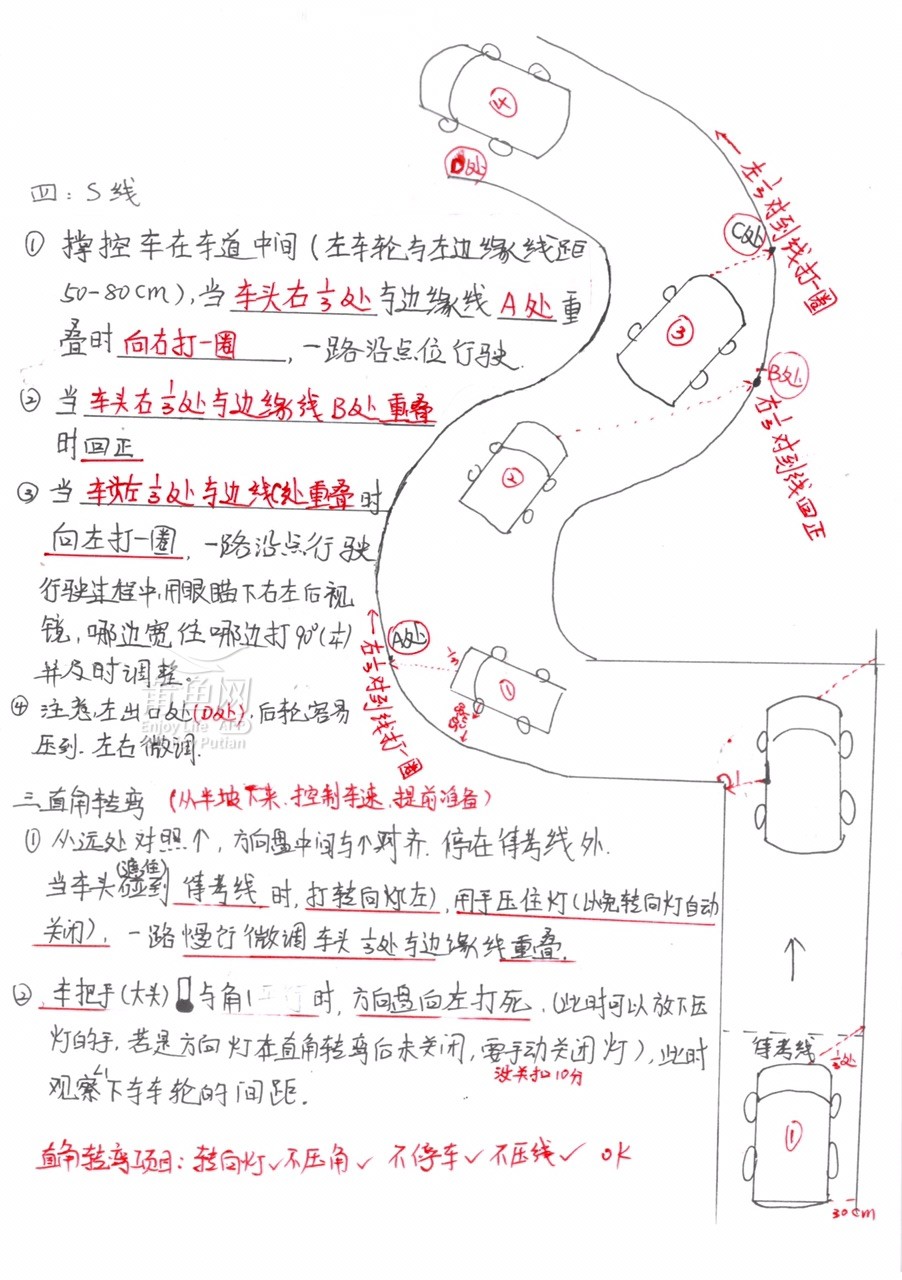 四：S线
① 撑控车在车道中间（左车轮与左边缘线距
50-80cm），当车头右1/3处与边缘线A处重
叠时向右打一圈，一路沿点位行驶.
② 当车头右1/3处与边缘线B处重叠
时回正
③ 当车头左1/3处与边线C处重叠时
向左打一圈，一路沿点行驶
行驶过程中，用眼瞄下右左后视
镜，哪边宽往哪边打90°(1/4)
并及时调整。
④ 注意，左出口处(D处)，后轮容易
压到.左右微调.
三直角转弯（从半坡下来、控制车速、提前准备）
① 从远处对照↑，方向盘中间与↑对齐.停在待考线外.
(遮住)
当车头碰到待考线时，打转向灯(左)，用手压住灯(以免转向灯自动
关闭)，一路慢行微调车头1/3处与边缘线重叠.
② 车把手(大头)与角平行时，方向盘向左打死.（此时可以放下压
灯的手，若是方向灯在直角转弯后未关闭，要手动关闭灯），此时
没关扣10分
观察下车车轮的间距.
直角转弯项目：转向灯✓不压角✓ 不停车✓不压线✓ OK
4
D处
←左1/3对到线打一圈
C处
3
B处
右1/3对到线回正
2
A处
←右1/3对到线打一圈
1
待考线
1/3处
1
30cm
莆鱼网
Enjoy Life APP
Putian